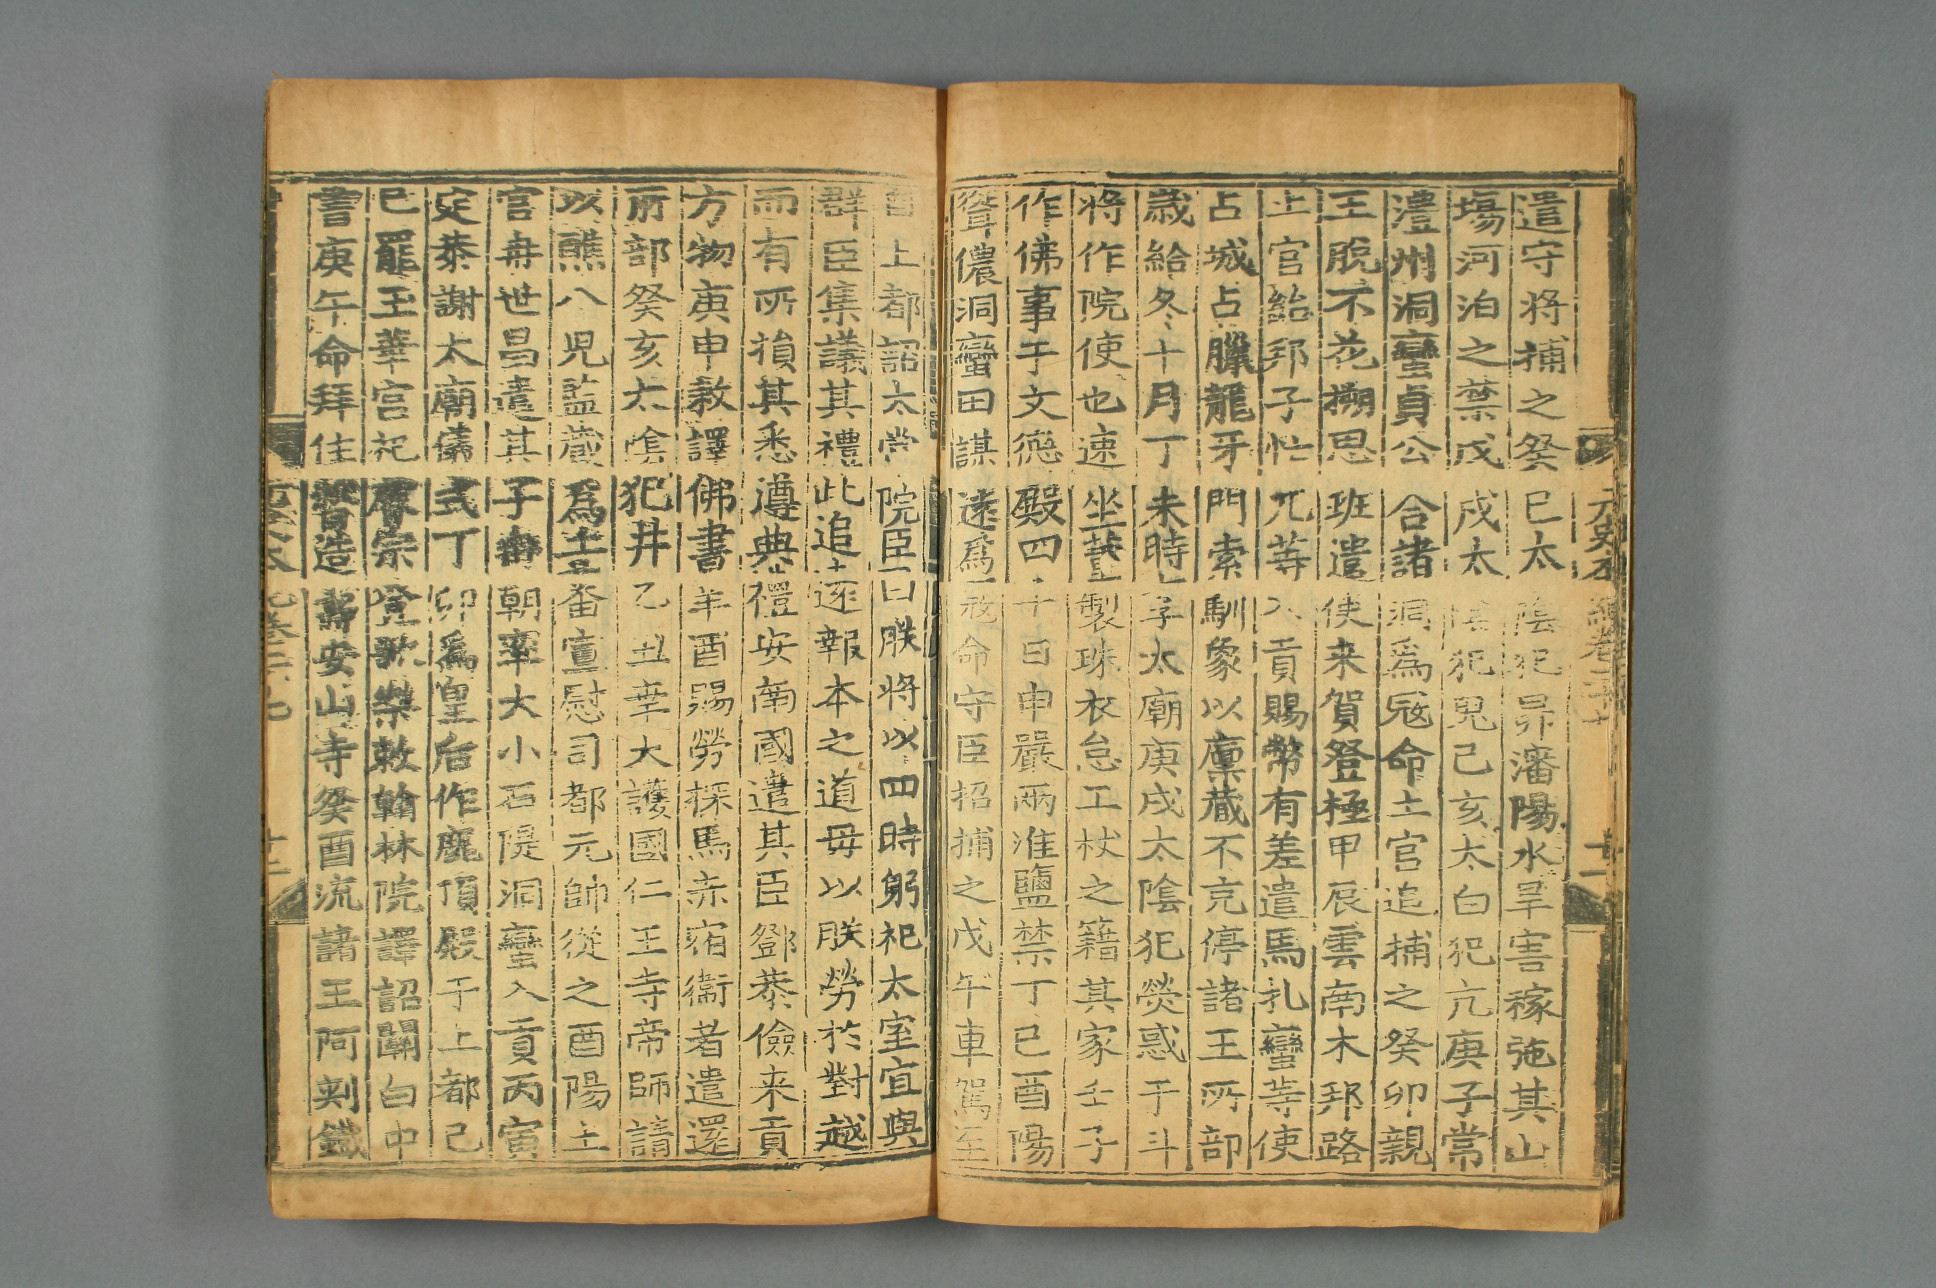 元史本紀卷二十七 十二
遣守將捕之癸巳太陰犯昴瀋陽水旱害稼弛其山
塲河泊之禁戊戌太陰犯鬼己亥太白犯亢庚子常
澧州洞蠻貞公合諸洞爲冦命土官追捕之癸卯親
王脫不花搠思班遣使来賀登極甲辰雲南木邦路
土官紿邦子忙兀等入貢賜幣有差遣馬扎蠻等使
占城占臘龍牙門索馴象以廪藏不充停諸王所部
歲給冬十月丁未時享太廟庚戌太陰犯熒惑于斗
將作院使也速坐董製珠衣怠工杖之籍其家壬子
作佛事于文德殿四十日申嚴兩淮鹽禁丁巳酉陽
聳儂洞蠻田謀遠爲冦命守臣招捕之戊午車駕至
自上都詔太常院臣曰朕將以四時躬祀太室宜與
群臣集議其禮此追遠報本之道毋以朕勞於對越
而有所損其悉遵典禮安南國遣其臣鄧恭儉来貢
方物庚申敕譯佛書辛酉賜勞探馬赤宿衞者遣還
所部癸亥太陰犯井乙丑幸大護國仁王寺帝師請
以醮八児監藏爲土畨宣慰司都元帥從之酉陽土
官冉世昌遣其子冉朝率大小石隄洞蠻入貢丙寅
定恭謝太廟儀式丁卯爲皇后作鹿頂殿于上都己
巳罷玉華宮祀睿宗登歌樂敕翰林院譯詔關白中
書庚午命拜住督造壽安山寺癸酉流諸王阿剌鐵